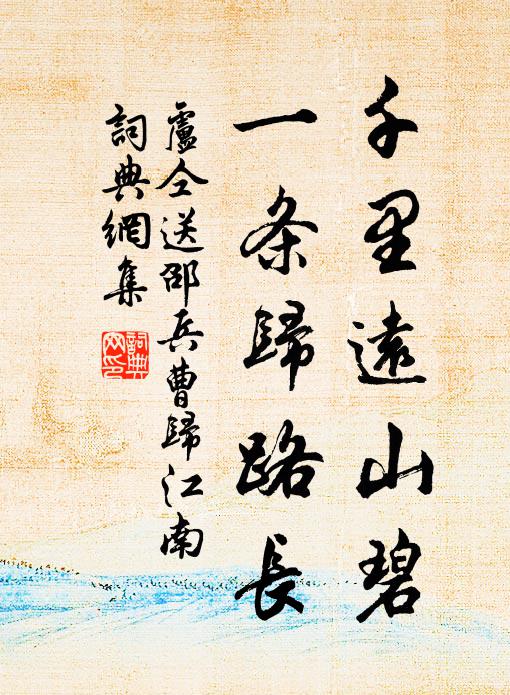 千里遠山碧
一条歸路長
盧仝送邵兵曹歸江南
詞典網集
詞典网印